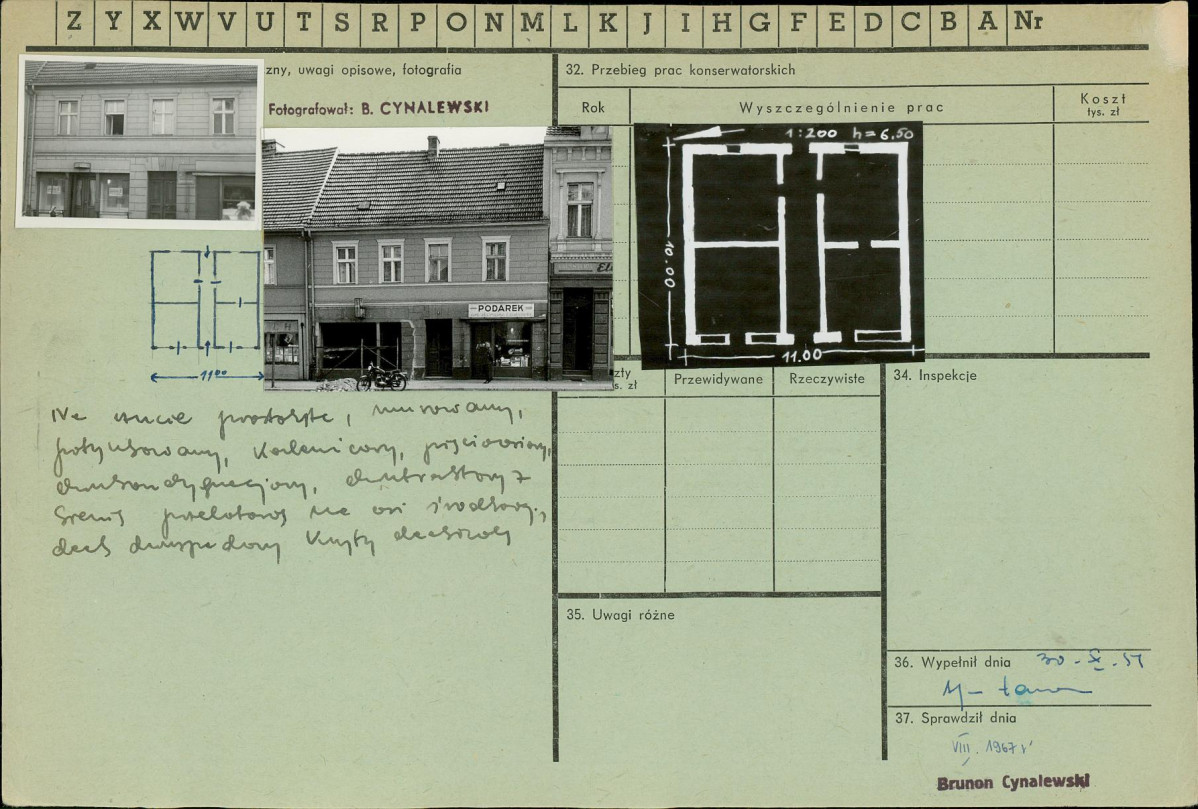 Z Y X W V U T S R P O N M L K J I H G F E D C B A Nr
zny, uwagi opisowe, fotografia
Fotografował: B. CYNALEWSKI
PODAREK
11.00
Na rzucie prostokąta, murowany,
potynkowany, kalenicowy, pięcioosiowy,
dwukondygnacjowy, dwutraktowy z
sienią przelotową na osi środkowej,
dach dwuspadowy kryty dachówką
32. Przebieg prac konserwatorskich
Rok
Wyszczególnienie prac
Koszt
tys. zł
1:200 h=6.50
10.00
11.00
zty
s. zł
Przewidywane
Rzeczywiste
34. Inspekcje
35. Uwagi różne
36. Wypełnił dnia 30.X.
37. Sprawdził dnia
VIII. 1967 r
Brunon Cynalewski